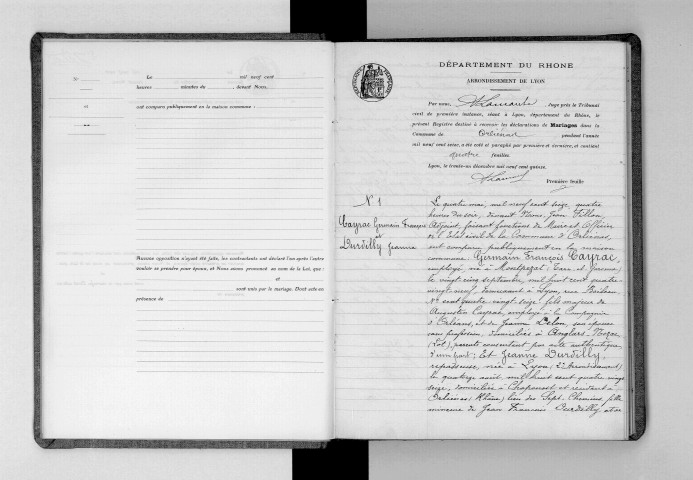 N°
et
Le mil neuf cent
heures minutes du , devant Nous,
ont comparu publiquement en la maison commune :
Aucune opposition n'ayant été faite, les contractants ont déclaré l'un après l'autre
vouloir se prendre pour époux, et Nous avons prononcé au nom de la Loi, que :
et
sont unis par le mariage. Dont acte en
présence de
DÉPARTEMENT DU RHONE
ARRONDISSEMENT DE LYON
Par nous, Juge près le Tribunal
civil de première instance, séant à Lyon, département du Rhône, le
présent Registre destiné à recevoir les déclarations de Mariages dans la
Commune de Orliénas pendant l'année
mil neuf cent seize, a été coté et paraphé par première et dernière, et contient
quatre feuilles.
Lyon, le trente-un décembre mil neuf cent quinze.
Première feuille
N° 1
Cayrac Germain François
et
Durdilly Jeanne
Le quatre mai, mil neuf cent seize, quatre
heures du soir, devant Nous, Jean Fillon,
Adjoint, faisant fonctions de Maire et Officier
de l'Etat civil de la Commune d'Orliénas,
ont comparu publiquement en la maison
commune : Germain François Cayrac,
employé, né à Montpezat (Tarn et Garonne)
le vingt cinq septembre, mil huit cent quatre
vingt neuf, demeurant à Lyon, rue Boileau
N° cent quatre vingt seize, fils majeur de
Augustin Cayrac, employé à la Compagnie
d'Orléans, et de Jeanne Delon, son épouse
sans profession, domiciliés à Anglars-Nozac
(Lot), parents consentant par acte authentique,
d'une part ; Et Jeanne Durdilly,
repasseuse, née à Lyon (2e Arrondissement)
le quatorze août, mil huit cent quatre vingt
seize, domiciliée à Chaponost et résidant à
Orliénas (Rhône) lieu des Sept Chemins, fille
mineure de Jean François Durdilly et de